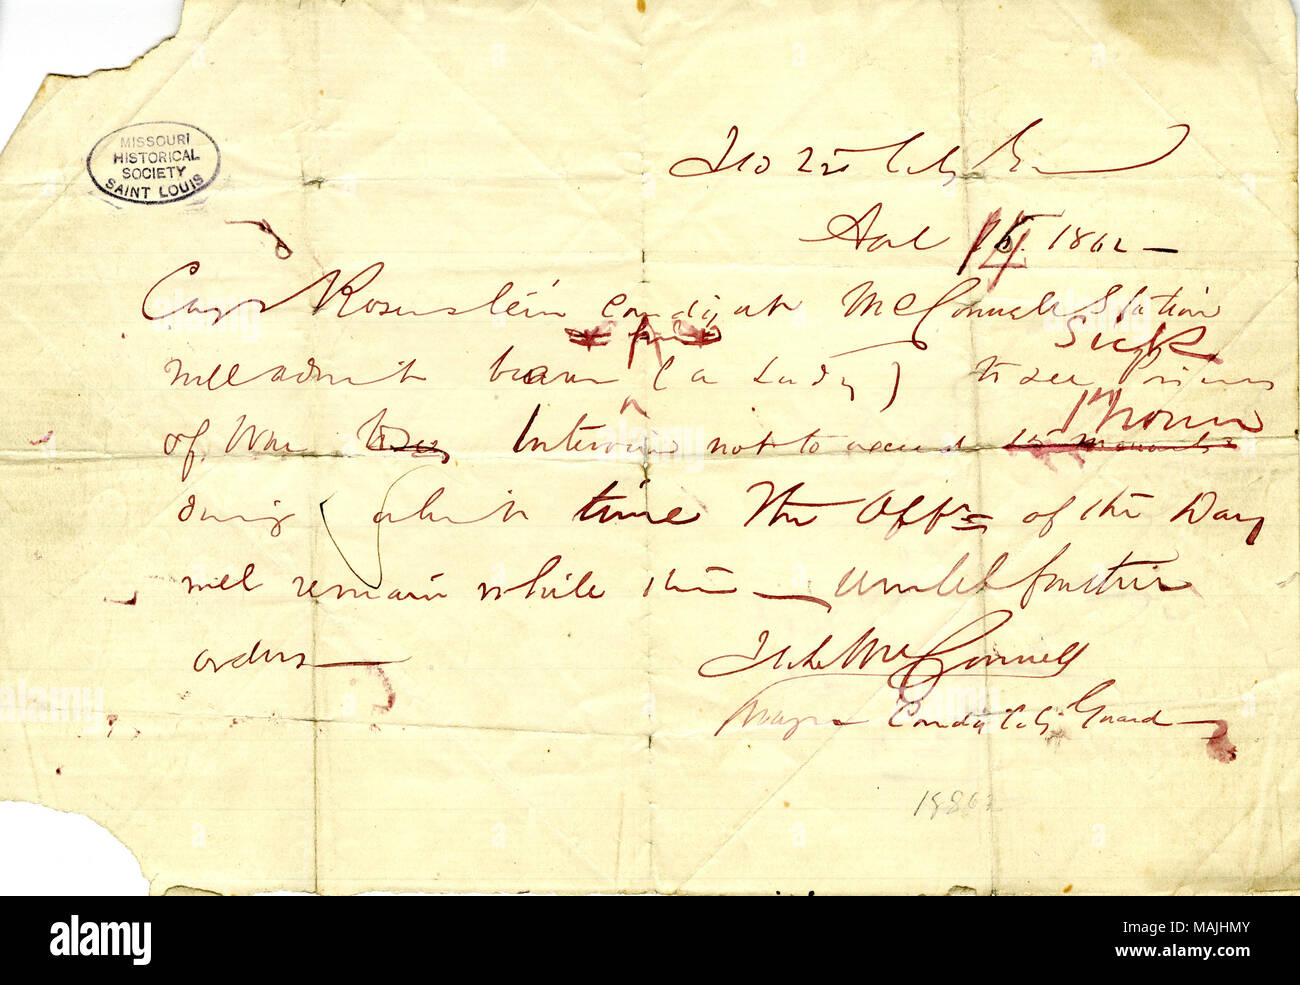 MISSOURI
HISTORICAL
SOCIETY
SAINT LOUIS
City
1862
Capt Rosenstein Comdg at McConnell Station
will admit bearer (a Lady) to see Sick Prisoners
of War Interview not to exceed 1 hour
during which time the Offr of the Day
will remain while this until further
orders
McConnell
Major Comdg City Guard
1862
alamy
MAJHMY
www.alamy.com